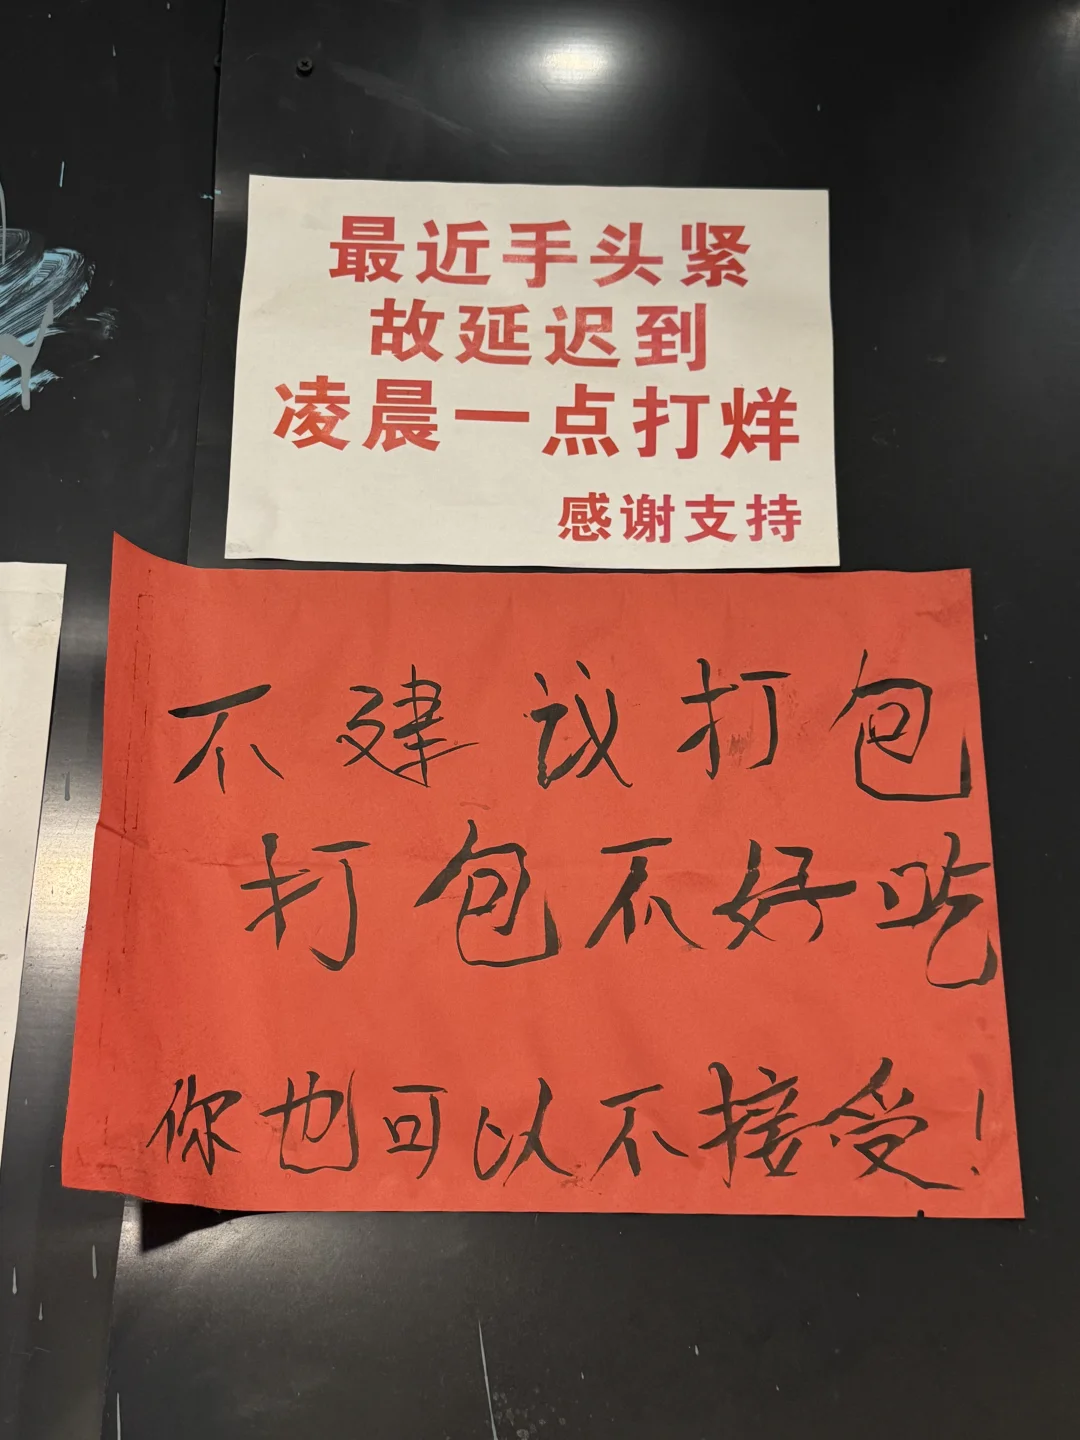 最近手头紧
故延迟到
凌晨一点打烊
感谢支持
不建议打包
打包不好吃
你也可以不接受!